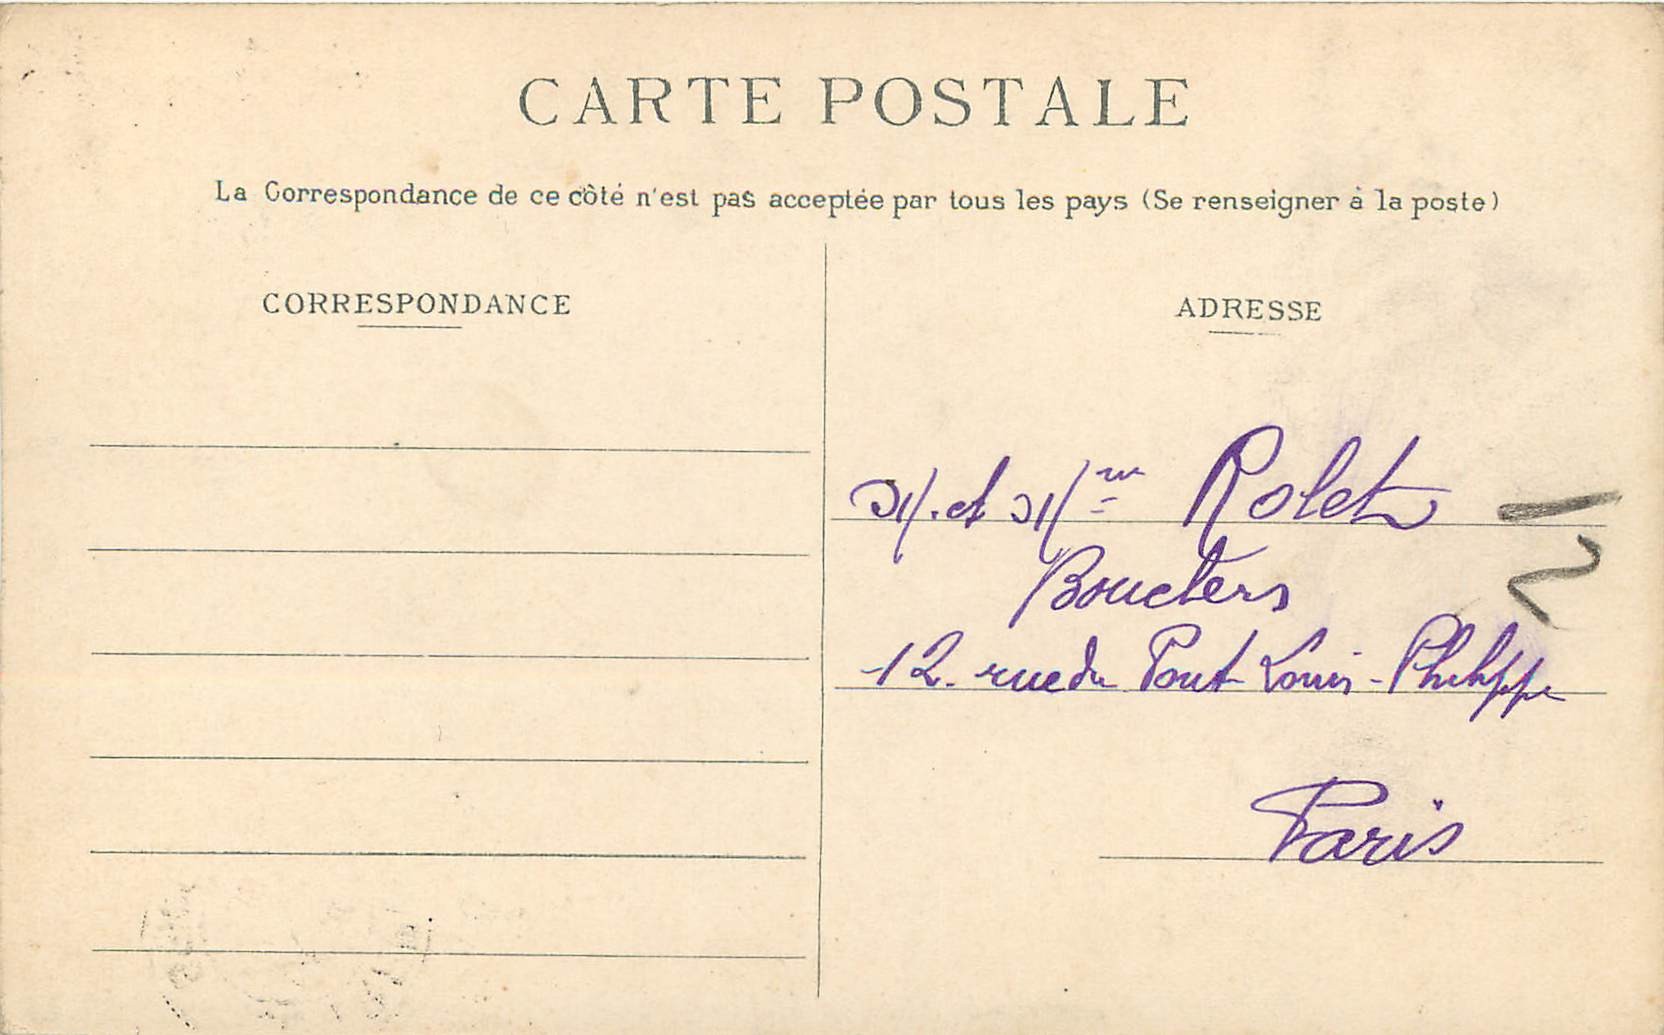 CARTE POSTALE
La Correspondance de ce côté n'est pas acceptée par tous les pays (Se renseigner à la poste)
CORRESPONDANCE
ADRESSE
M. et Mme Rolet
Bouchers
12. rue du Pont Louis-Philippe
Paris